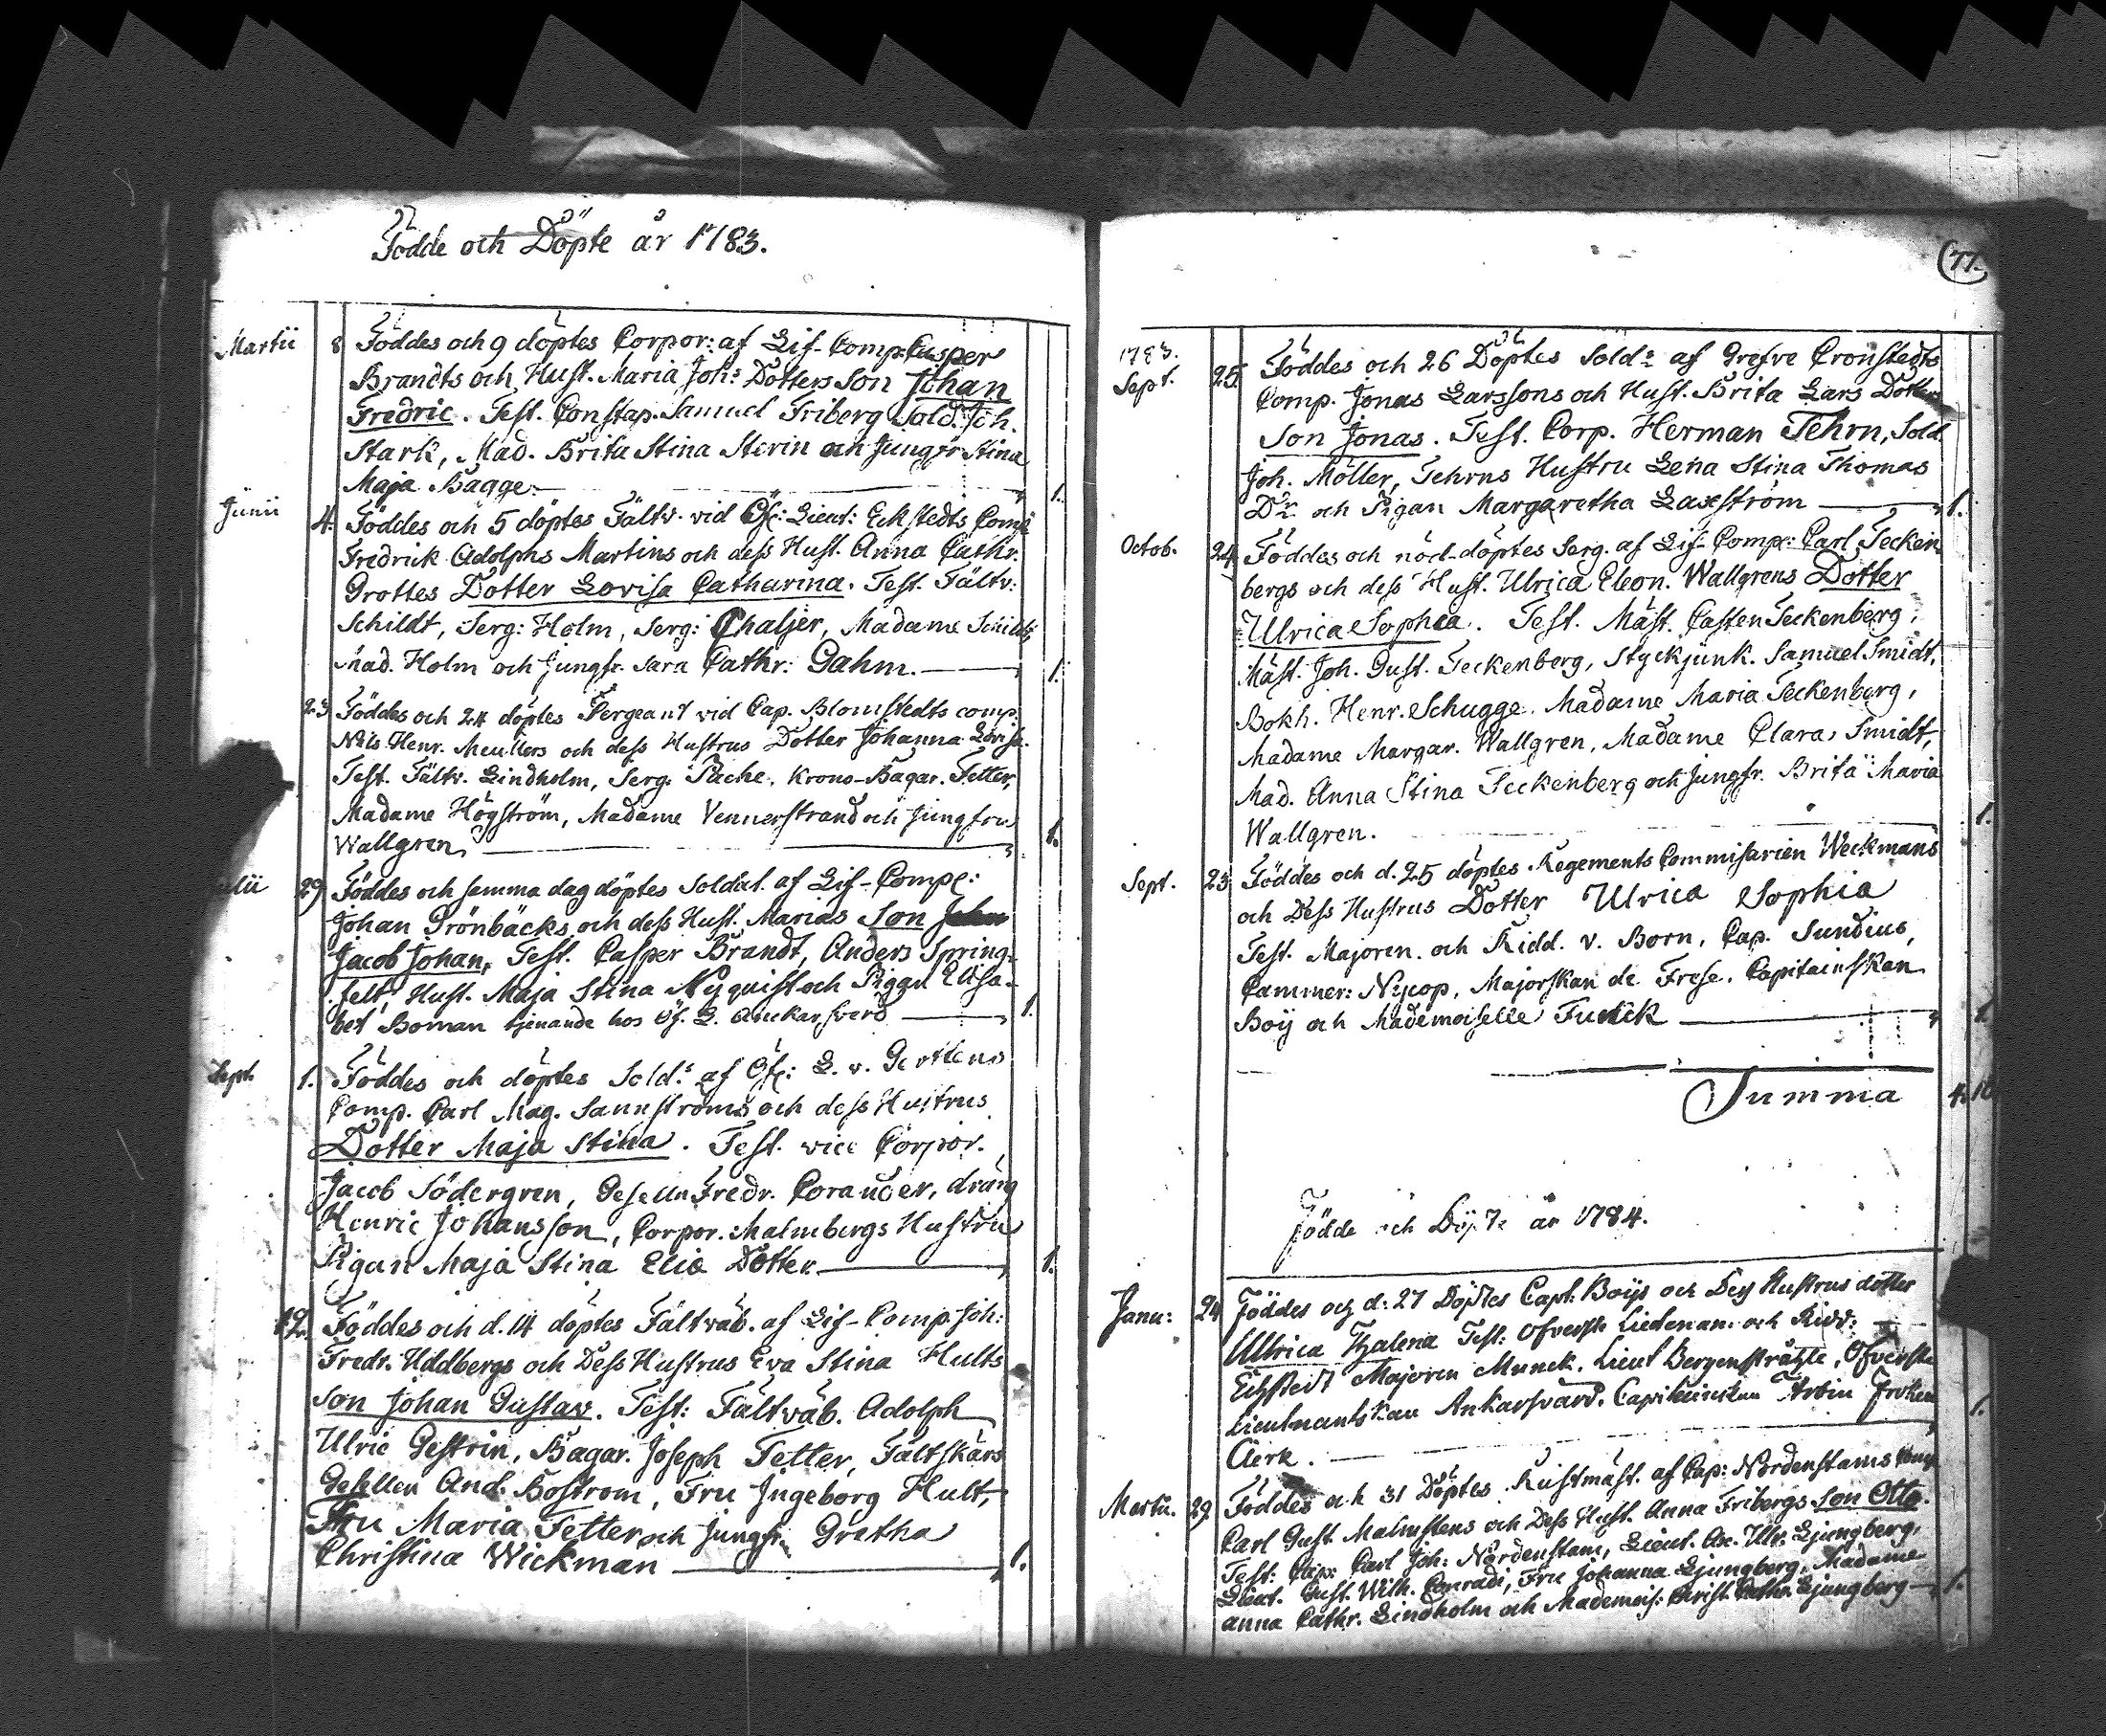 Födde och Döpte år 1783.
Martii 8 Föddes och 9 döptes Corpor: af Lif-Comp. Casper
Brandts och Hust. Maria Johs Dotters Son Johan
Fredric. Test. Constap. Samuel Friberg Sold. Joh.
Stark, Mad. Brita Stina Sterin och Jungfr Stina
Maja Bagge. 1.
Junii 4. Föddes och 5 döptes Fältv. vid Öf: Lieut: Eckstedts Comp
Fredrick Adolphs Martins och dess Hust. Anna Cathr.
Grottes Dotter Lovisa Catharina. Test. Fältv:
Schildt, Serg: Holm, Serg: Chaljer, Madame Schildt,
Mad. Holm och Jungfr. Sara Cathr: Gahm. 1.
23 Föddes och 24 döptes Sergeant vid Cap. Blomstedts comp.
Nils Henr. Meullers och dess Hustrus Dotter Johanna Lovisa.
Test. Fältv. Lindholm, Serg. Pache, Krono-Bagar. Tetter,
Madame Högström, Madame Vennerstrand och Jungfru
Wallgren 1.
29 Föddes och samma dag döptes Soldat. af Lif-Comp:
Johan Grönbäcks och dess Hust. Marias Son
Jacob Johan, Test. Casper Brandt, Anders Spring-
felt, Hust. Maja Stina Nyquist och Pigan Elisa-
bet Boman tjenande hos Öf. L. Anckarsverd 1.
Sept. 1. Föddes och döptes Sold: af Öf: L. v. Gerttens
Comp. Carl Mag. Sannströms och dess Hustrus
Dotter Maja Stina. Test. vice Corpor.
Jacob Södergren, Gesellen Fredr. Corander, dräng
Henric Johansson, Corpor. Malmbergs Hustru
Pigan Maja Stina Elie Dotter 1.
12. Föddes och d. 14 döptes Fältväb. af Lif-Comp. Joh:
Fredr. Uddbergs och Dess Hustrus Eva Stina Hults
Son Johan Gustav. Test: Fältväb. Adolph
Ulric Gestrin, Bagar. Joseph Tetter, Fältskärs
Gesellen And. Boström, Fru Ingeborg Hult,
Fru Maria Tetter och Jungfr. Gretha
Christina Wickman 1.
77.
1783.
Sept. 25. Föddes och 26 Döptes Sold: af Grefve Cronstedts
Comp. Jonas Larssons och Hust. Brita Lars Dotters
Son Jonas. Test. Corp. Herman Tehrn, Sold.
Joh. Möller, Tehrns Hustru Lena Stina Thomas
Dr. och Pigan Margaretha Laxström 1.
Octob. 24 Föddes och nöd-döptes Serg. af Lif-Comp: Carl Tecken
bergs och dess Hust. Ulrica Eleon. Wallgrens Dotter
Ulrica Sophia. Test. Mäst. Casten Teckenberg,
Mäst. Joh. Gust. Teckenberg, Styckjunk. Samuel Smidt,
Bokh. Henr. Schugge. Madame Maria Teckenberg,
Madame Margar. Wallgren, Madame Clara Smidt,
Mad. Anna Stina Teckenberg och Jungfr. Brita Maria
Wallgren. 1.
Sept. 23 Föddes och d. 25 döptes Regements Commisarien Weckmans
och Dess Hustrus Dotter Ulrica Sophia
Test. Majoren och Ridd. v. Born, Cap. Sundius,
Cammer: Nycop, Majorskan de Frese, Capitainskan
Boij och Mademoiselle Funck 1.
Summa 4. 10
Födde och Döpte år 1784.
Janu: 24 Föddes och d: 27 Döptes Capt: Boijs och Dess Hustrus dotter
Ullrica Test: Öfverste Lieutenan. och Ridd:
Majoren Munck, Lieut Öfverste
Lieutnantskan Ankarsvärd, Capiteinskan
Aerk. 1.
Martii. 29. Föddes och 31 Döptes Rustmäst. af Cap: Nordenstams Comp
Carl Gust. Malmstens och Dess Hust. Anna Fribergs Son Otto.
Test: Cap: Carl Joh: Nordenstam, Lieut. Ax. Ulr. Ljungberg,
Lieut. Gust. Wilh. Conradi, Fru Johanna Ljungberg, Madame
Anna Cathr. Lindholm och Mademois: Christ. Cathr. Ljungberg 1.